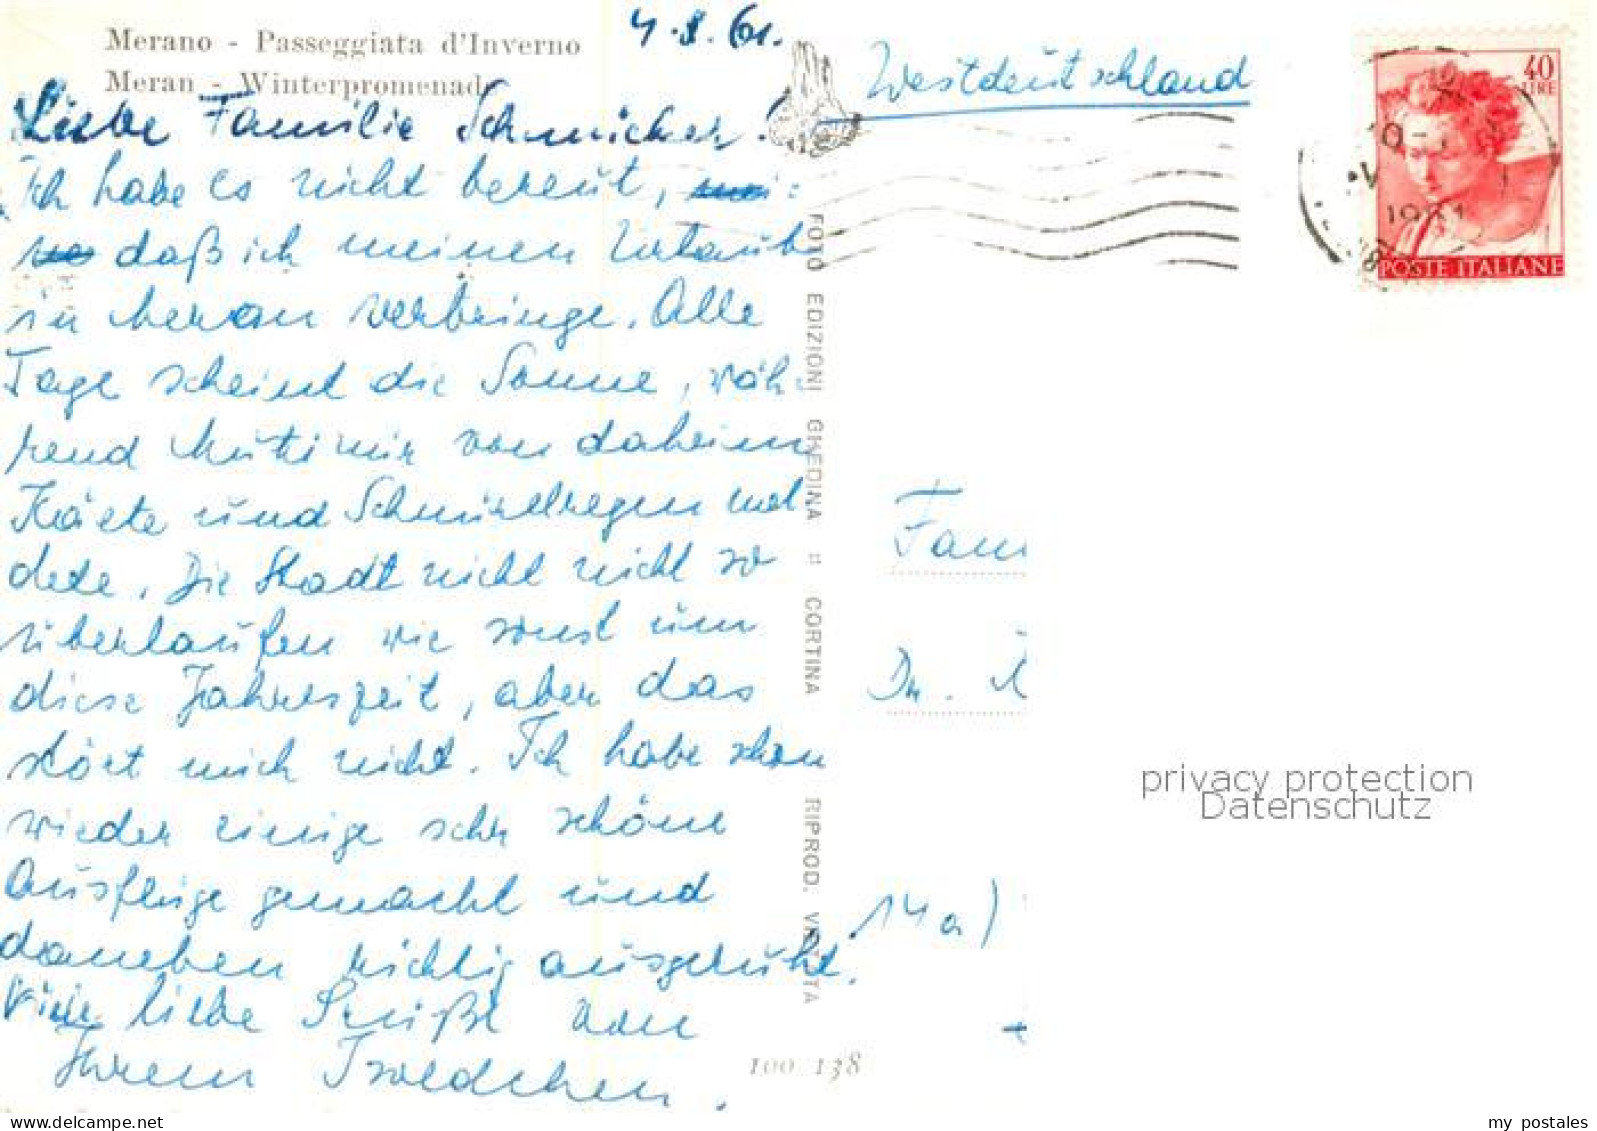 Merano - Passeggiata d'Inverno
Meran - Winterpromenade
4.8.61.
Westdeutschland
40
LIRE
POSTE ITALIANE
1961
Liebe Familie Schmicker!
Ich habe es nicht bereut,
daß ich meinen Urlaub
in Meran verbringe. Alle
Tage scheint die Sonne, wäh-
rend Mutti mir von daheim
Kälte und Schnürlregen mel-
dete. Die Stadt nicht nicht so
überlaufen wie sonst um
diese Jahreszeit, aber das
stört mich nicht. Ich habe schon
wieder einige sehr schöne
Ausflüge gemacht und
daneben richtig ausgeruht.
Viele liebe Grüße von
Ihrem Isoldchen.
FOTO EDIZIONI GHEDINA # CORTINA RIPROD. VIETATA
Fam
Dr.
14a)
privacy protection
Datenschutz
100 138
my postales
www.delcampe.net